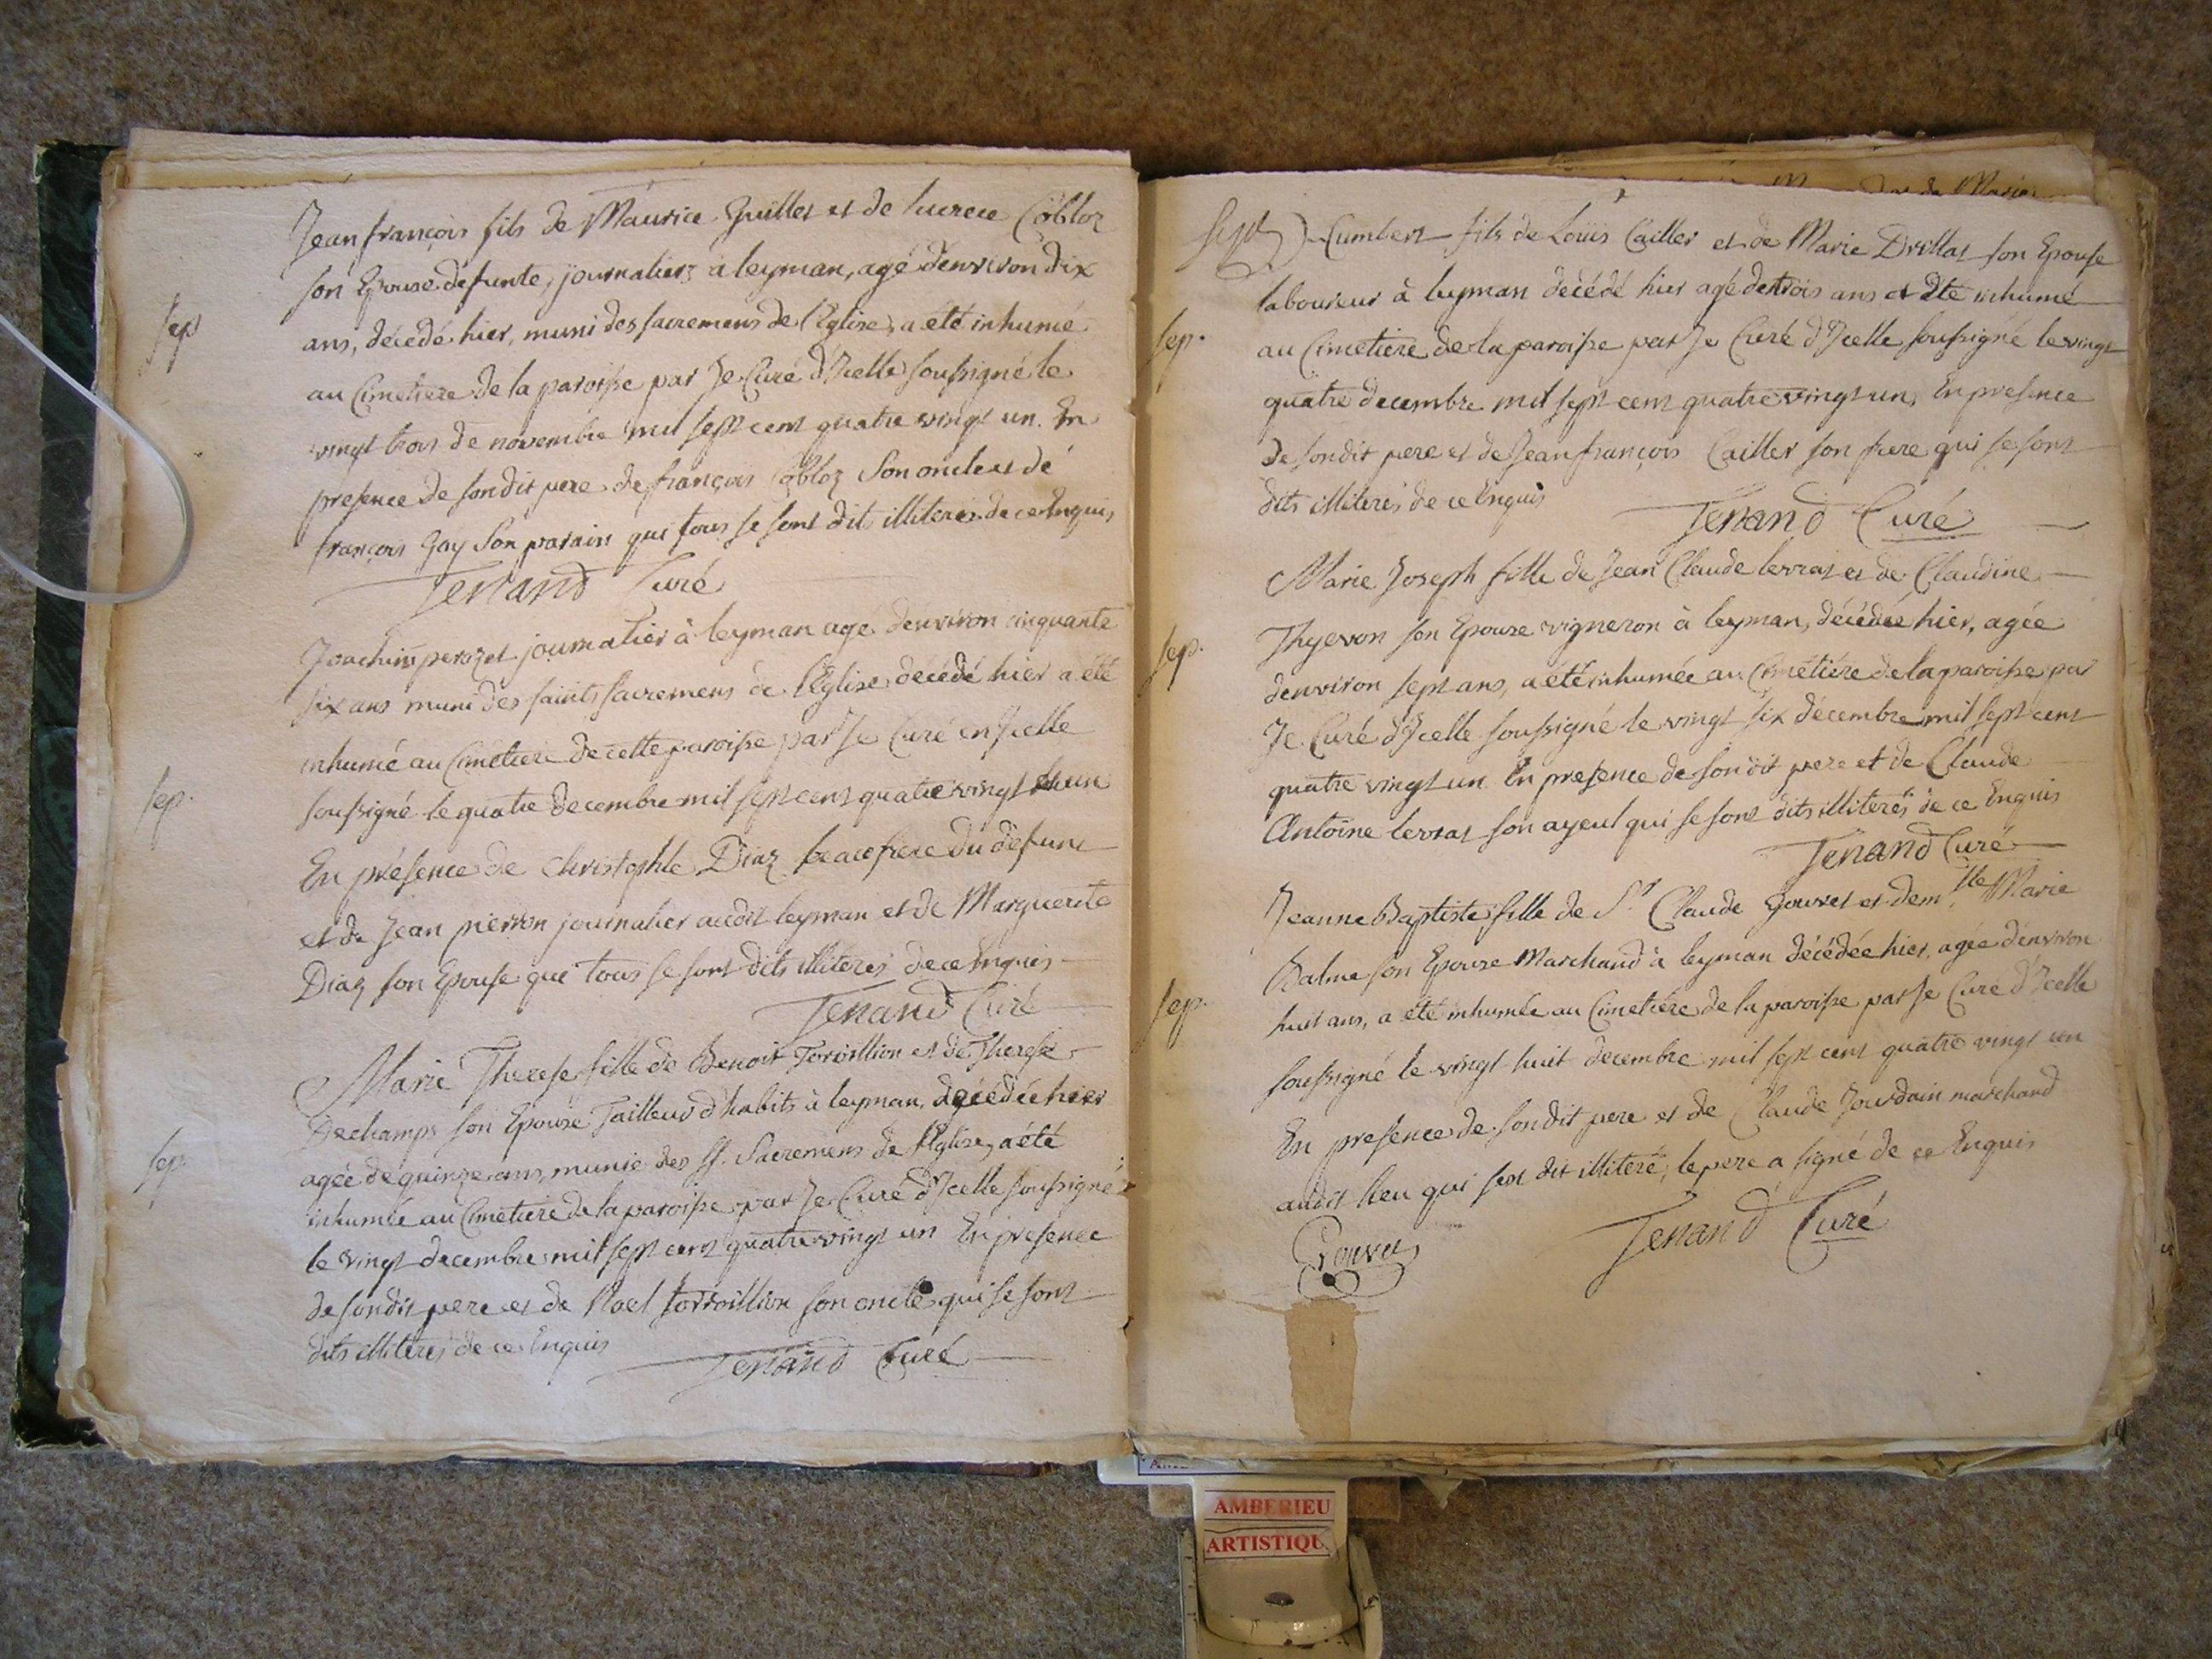 Jean françois fils de Maurice Guillet et de lucrece Cobloz
son Epouse defunte, journalier à leyman, agé d'environ dix
sep
ans, décedé hier, muni des sacremens de l'Eglise, a été inhumé
au Cimetiere de la paroisse par Je Curé d'Icelle soussigné le
vingt trois de novembre mil sept cent quatre vingt un. En
presence de son dit pere de françois Cobloz son oncle et de
françois Gay son parain qui tous se sont dits illiterés de ce Enquis
Tenand Curé
Joachim perozet journalier à leyman agé d'environ cinquante
six ans muni des saints sacremens de l'Eglise décédé hier a été
inhumé au Cimetiere de cette paroisse par Je Curé en Icelle
sep.
soussigné le quatre decembre mil sept cent quatre vingt un
En présence de Christophle Diaz beaufrere du defunt
et de Jean pierron journalier audit leyman et de Marguerite
Diaz son Epouse qui tous se sont dits illiterés de ce Enquis
Tenand Curé
Marie Therese fille de Benoit Torvillion et de Therese
Dechamps son Epouse Tailleur d'habits à leyman, décédée hier
sep.
agée de quinze ans, munie des SS. Sacremens de l'Eglise, a été
inhumée au Cimetiere de la paroisse par Je Curé d'Icelle soussigné
le vingt decembre mil sept cent quatre vingt un En presence
de son dit pere et de Noel Torvillion son oncle qui se sont
dits illiterés de ce Enquis
Tenand Curé
sept
Cumbert fils de Loüis Cailler et de Marie Drillat son Epouse
laboureur à leyman décédé hier agé de trois ans a été inhumé
sep.
au Cimetiere de la paroisse par Je Curé d'Icelle soussigné le vingt
quatre decembre mil sept cent quatre vingt un, En presence
de son dit pere et de Jean françois Cailler son frere qui se sont
dits illiterés de ce Enquis
Tenand Curé
Marie Joseph fille de Jean Claude levrat et de Claudine
Thyevon son Epouse vigneron à leyman, décédée hier, agée
sep.
d'environ sept ans, a été inhumée au Cimétiére de la paroisse par
Je Curé d'Icelle soussigné le vingt six décembre mil sept cent
quatre vingt un. En presence de son dit pere et de Claude
Antoine levrat son ayeul qui se sont dits illiterés de ce Enquis
Tenand Curé
Jeanne Baptiste fille de Sr. Claude Gouvet et dem.lle Marie
Balme son Epouse Marchand à leyman décédée hier, agée d'environ
sep.
huit ans, a été inhumée au Cimetiére de la paroisse par Je Curé d'Icelle
soussigné le vingt huit decembre mil sept cent quatre vingt un
En presence de son dit pere et de Claude Jourdain marchand
audit lieu qui s'est dit illiteré, le pere a signé de ce Enquis
Gouvet
Tenand Curé
AMBERIEU
ARTISTIQU